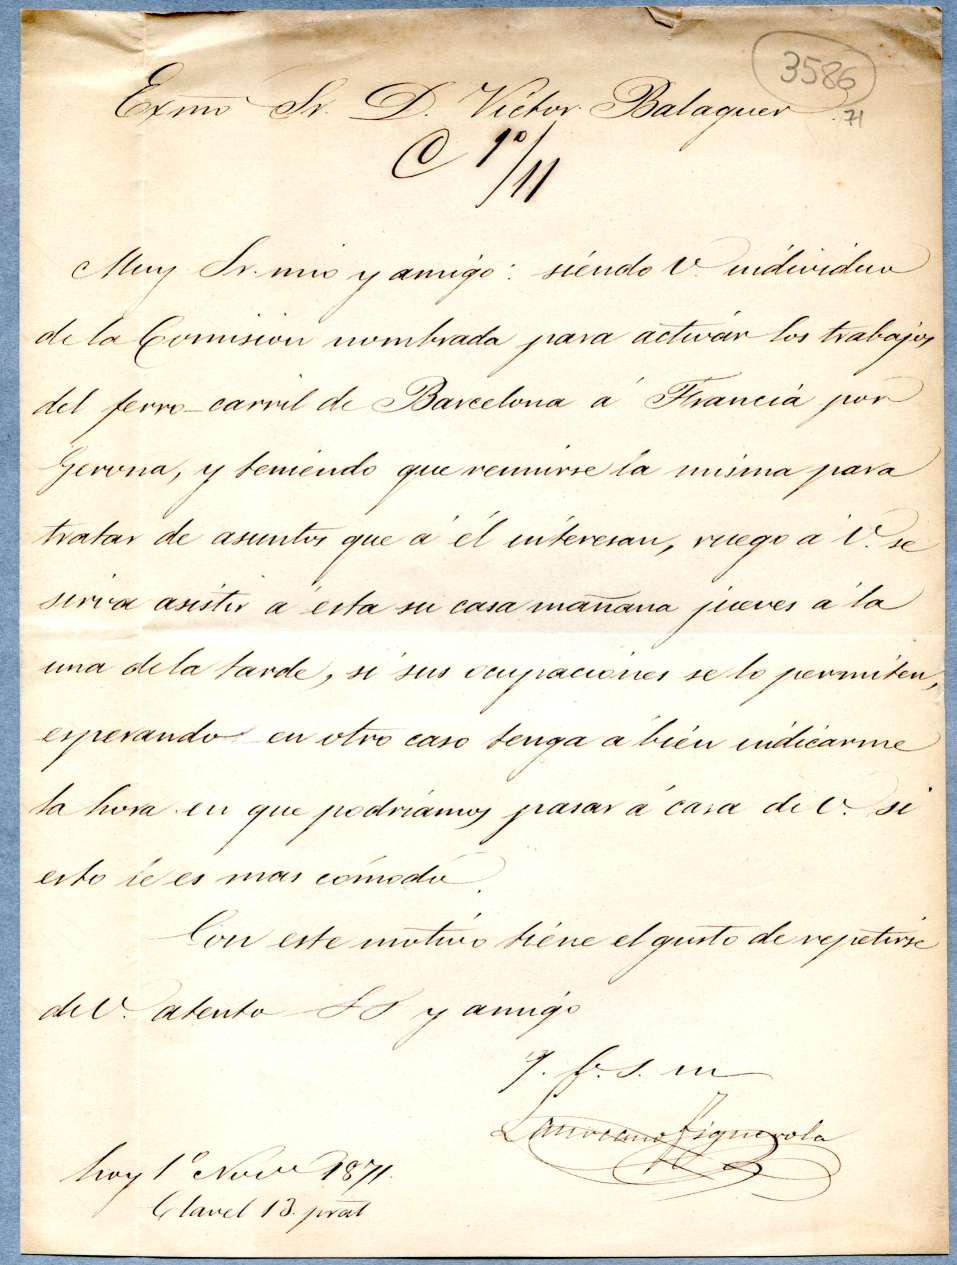 3586
Exmo Sr. D. Victor Balaguer.
71
C 1º/11
Muy Sr. mio y amigo: siendo V. individuo
de la Comision nombrada para activar los trabajos
del ferro-carril de Barcelona á Francia por
Gerona, y teniendo que reunirse la misma para
tratar de asuntos que á él interesan, ruego á V. se
sirva asistir á esta su casa mañana jueves á la
una de la tarde, si sus ocupaciones se lo permiten,
esperando en otro caso tenga á bien indicarme
la hora en que podriamos pasar á casa de V. si
esto le es mas cómodo.
Con este motivo tiene el gusto de repetirse
de V. atento S S y amigo
q. b. s. m
Laureano Figuerola
hoy 1º Nove 1871.
Clavel 13. pral